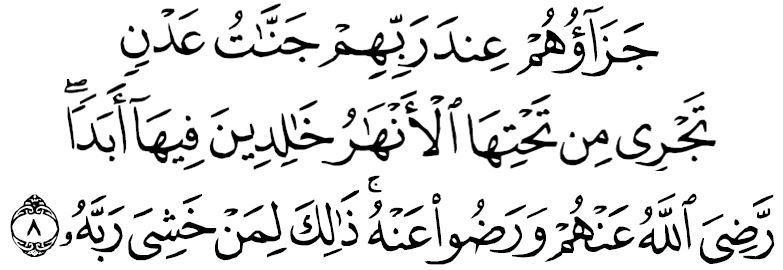 جَزَآؤُهُمْ عِندَ رَبِّهِمْ جَنَّٰتُ عَدْنٍ
تَجْرِى مِن تَحْتِهَا ٱلْأَنْهَٰرُ خَٰلِدِينَ فِيهَآ أَبَدًا ۖ
رَّضِىَ ٱللَّهُ عَنْهُمْ وَرَضُوا۟ عَنْهُ ۚ ذَٰلِكَ لِمَنْ خَشِىَ رَبَّهُۥ ٨